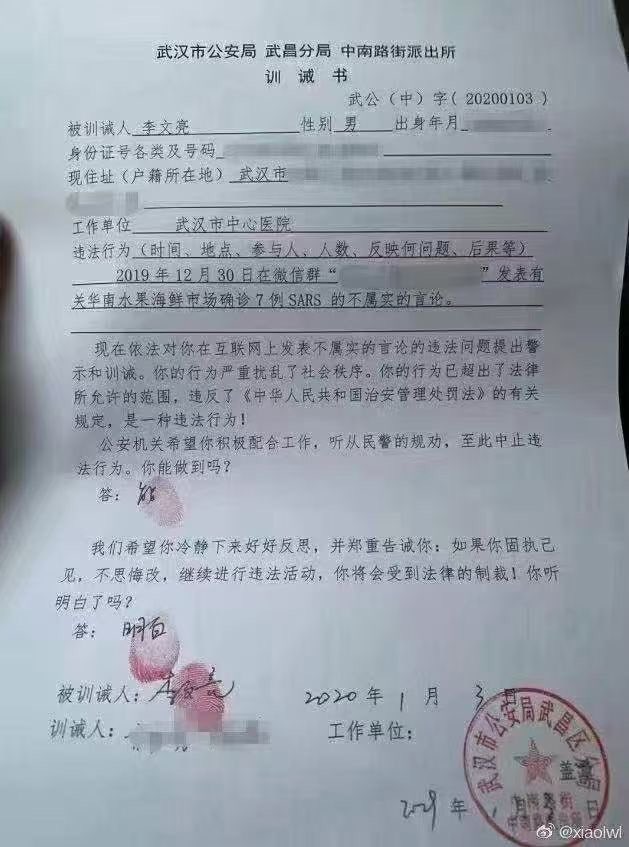 武汉市公安局 武昌分局 中南路街派出所
训 诫 书
武公（中）字（20200103）
被训诫人 李文亮 性别 男 出身年月
身份证号各类及号码
现住址（户籍所在地） 武汉市
工作单位 武汉市中心医院
违法行为（时间、地点、参与人、人数、反映何问题、后果等）
2019年12月30日在微信群“ ”发表有
关华南水果海鲜市场确诊7例SARS 的不属实的言论。
现在依法对你在互联网上发表不属实的言论的违法问题提出警
示和训诫。你的行为严重扰乱了社会秩序。你的行为已超出了法律
所允许的范围，违反了《中华人民共和国治安管理处罚法》的有关
规定，是一种违法行为！
公安机关希望你积极配合工作，听从民警的规劝，至此中止违
法行为。你能做到吗？
答： 能
我们希望你冷静下来好好反思，并郑重告诫你：如果你固执己
见，不思悔改，继续进行违法活动，你将会受到法律的制裁！你听
明白了吗？
答： 明白
被训诫人：李文亮 2020 年 1 月 3 日
训诫人： 工作单位：
武汉市公安局武昌区分局
盖章
年 日
@xiaolwl